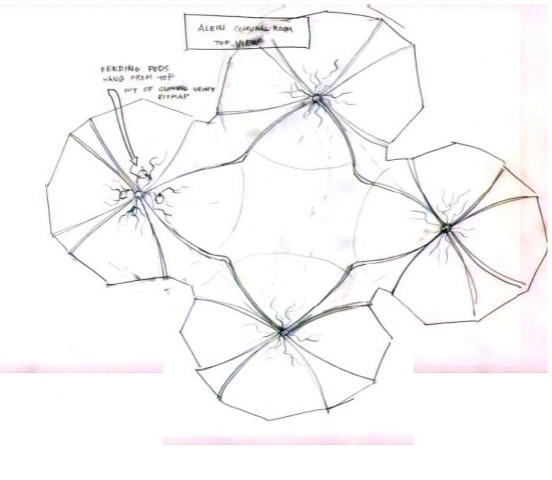 ALEIN COMUNAL ROOM
TOP VIEW
FEEDING PODS
HANG FROM TOP
OUT OF GLOWING VEINY
BITMAP